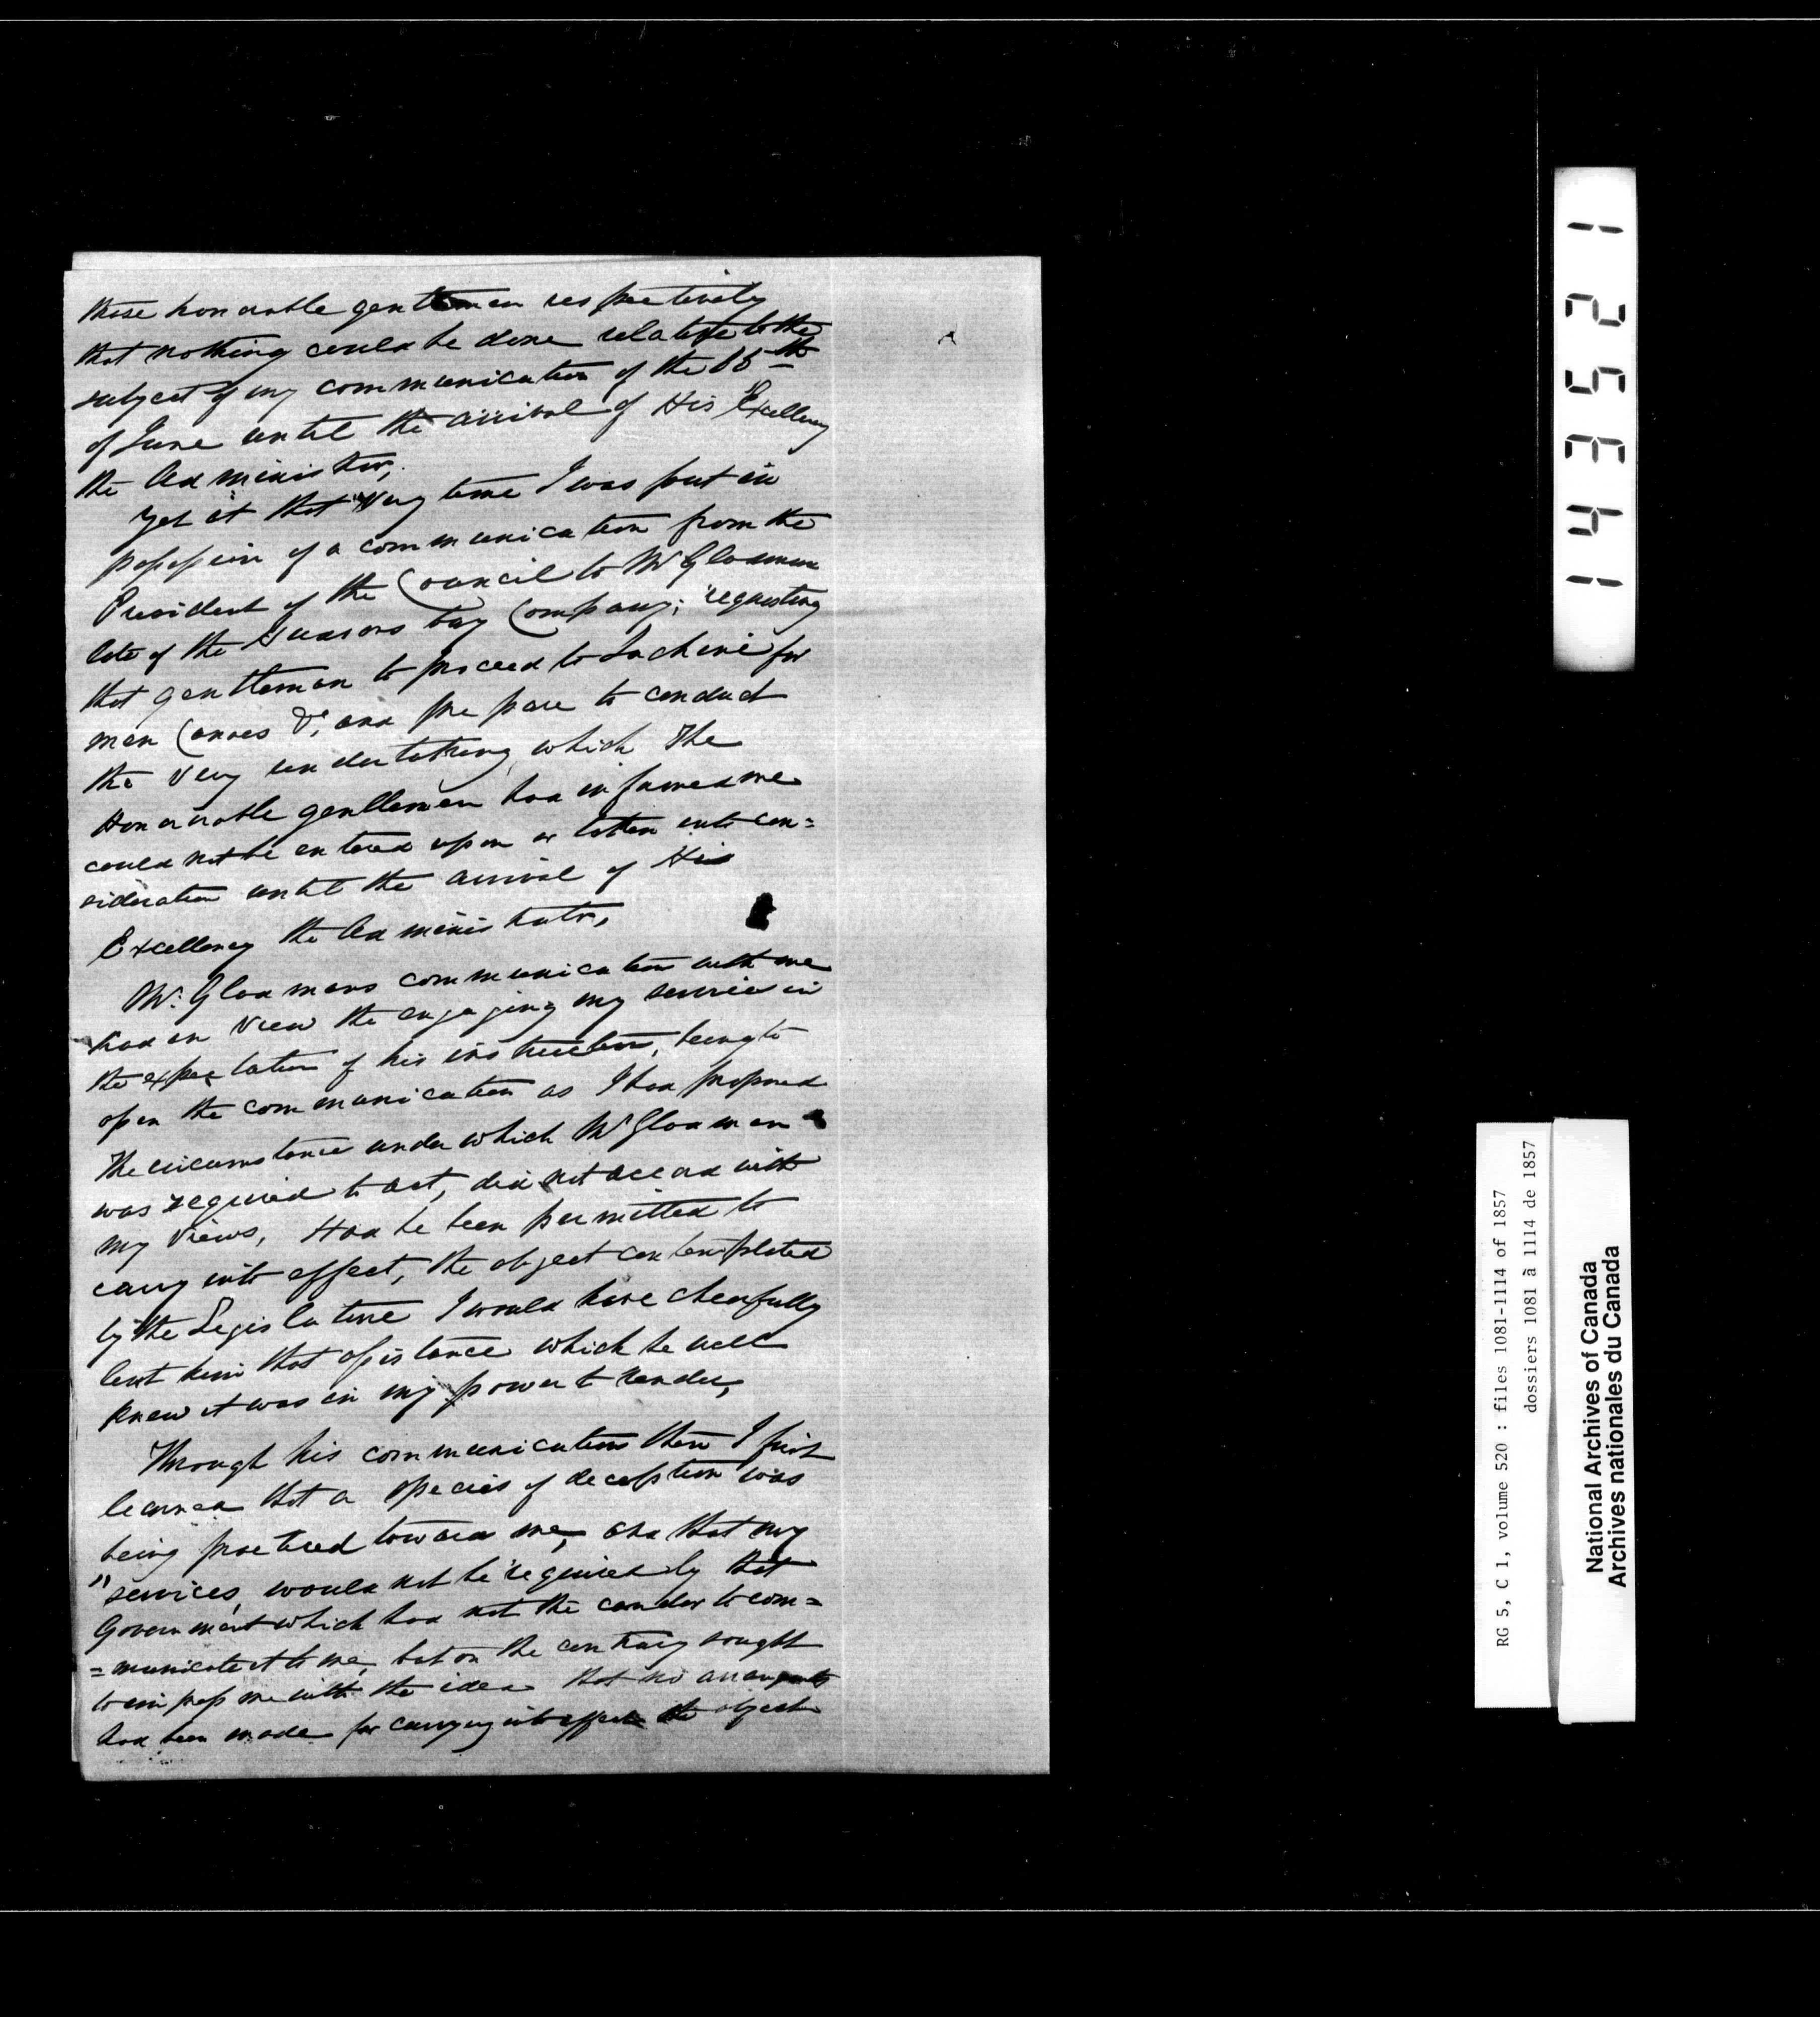 those honorable gentlemen respectively
that nothing could be done relative to the
subject of my communication of the 16th
of June until the arrival of His Excellency
the Administor,
Yet at that very time I was put in
possession of a communication from the
President of the Council to Mr Gladman
late of the Hudsons bay Company; requesting
that gentleman to proceed to Lachine for
men Canoes &c, and prepare to conduct
the very undertaking which The
Honorable gentlemen had informed me
could not be entered upon or taken into con=
sideration until the arrival of His
Excellency the Administrator,
Mr. Gladmans communication with me
had in view the engaging my services in
the expectation of his instructions, being to
open the communication as I had proposed
The circumstance under which Mr Gladman
was required to act, did not accord with
my views, Had he been permitted to
carry into effect, the object contemplated
by the Legislature I would have chearfully
lent him that assistance which he well
knew it was in my power to render,
Through his communications then I first
learned that a species of deception was
being practiced toward me, and that my
"services, would not be required by that
Government which had not the candor to com=
=municate it to me, but on the contrary sought
to impress me with the idea that no arrangmts
had been made for carrying into effect the object
14352 1
RG 5, C 1, volume 520 : files 1081-1114 of 1857
dossiers 1081 à 1114 de 1857
National Archives of Canada
Archives nationales du Canada